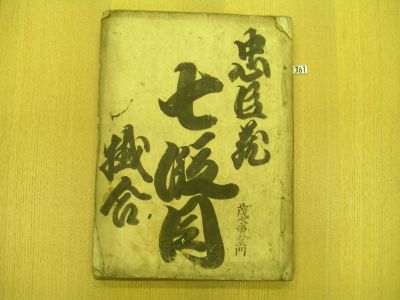 忠臣蔵
七段目
掛合
361